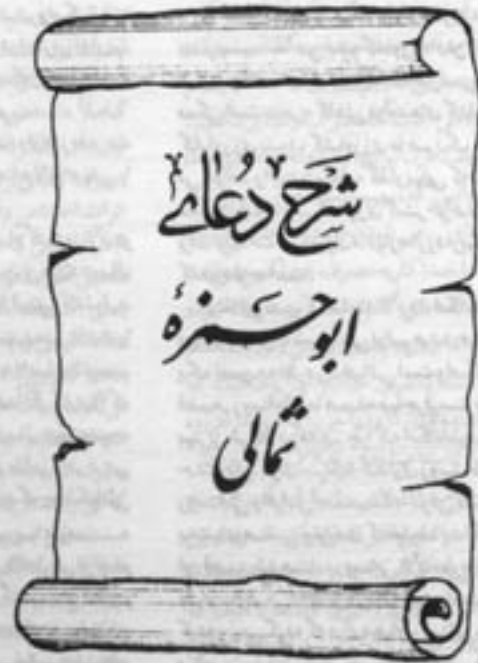 شرح دُعاے
ابو حمزهٔ
ثمالی